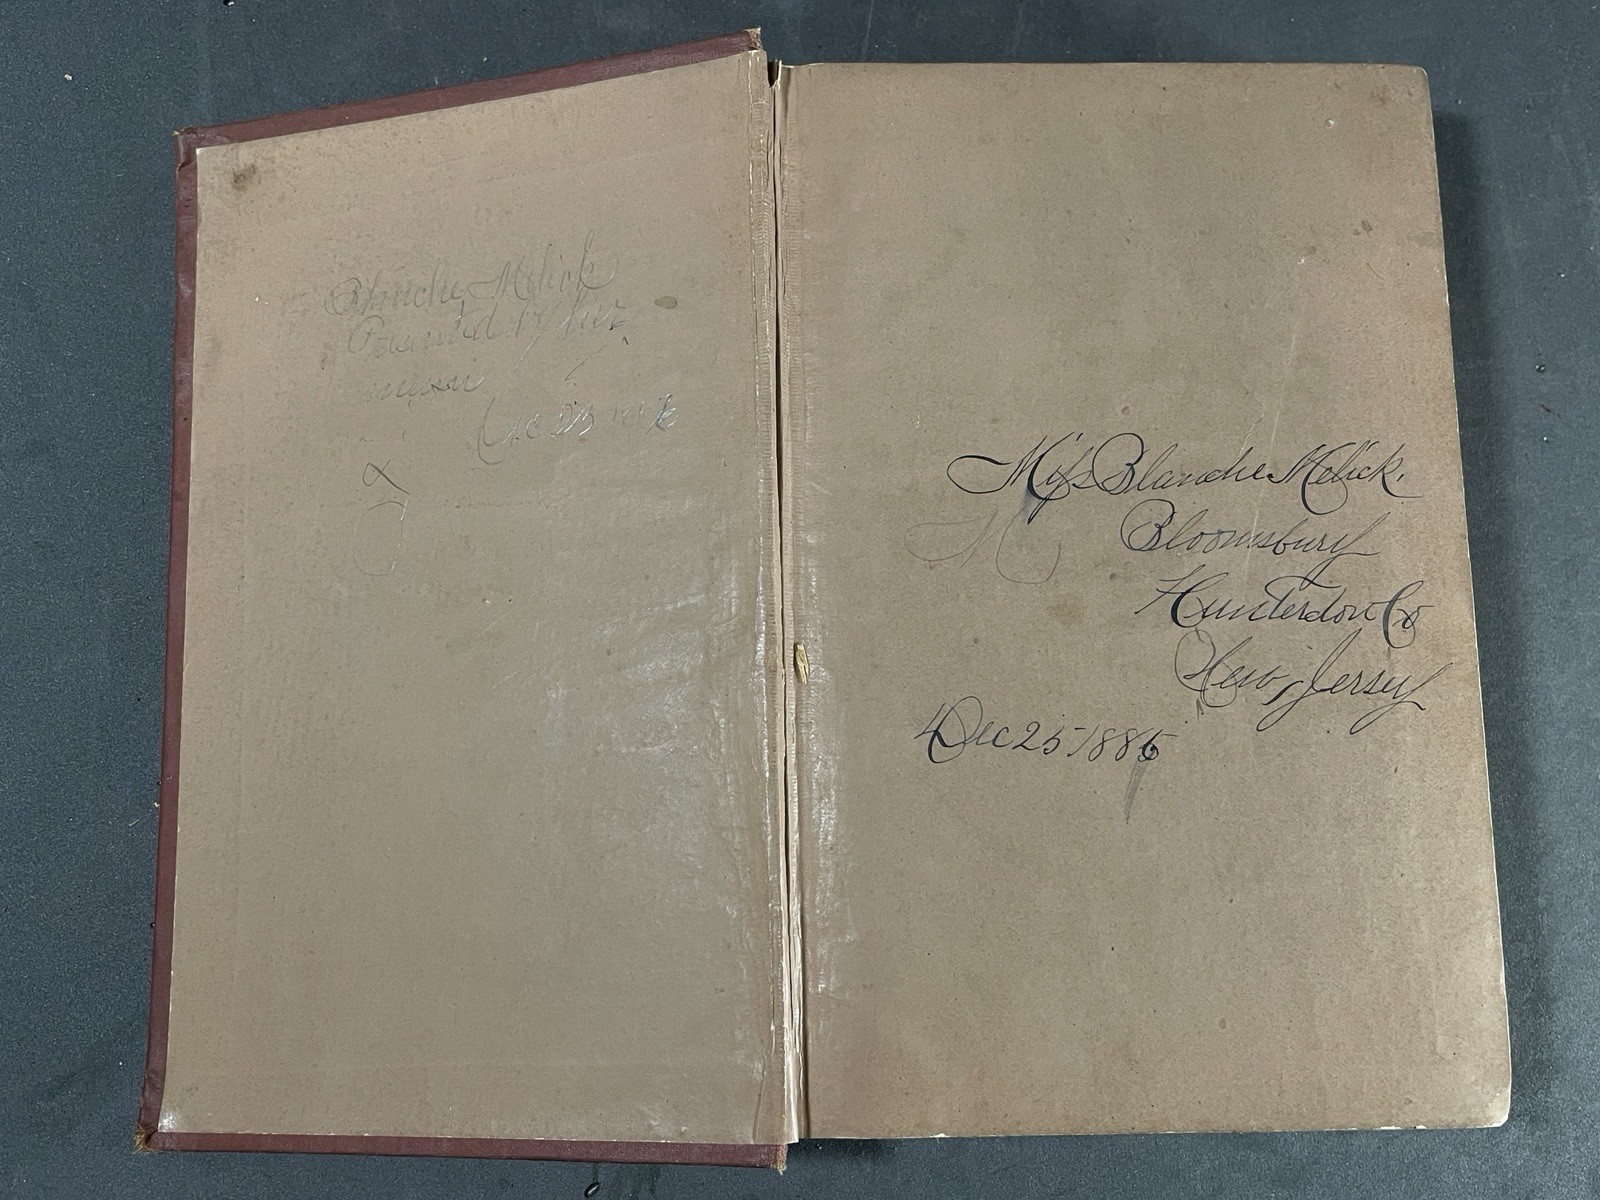 Blanche Melick
Presented by her
Dec 25 1886
Miss Blanche Melick.
Bloomsbury
Hunterdon Co
New Jersey
Dec 25 1886
M